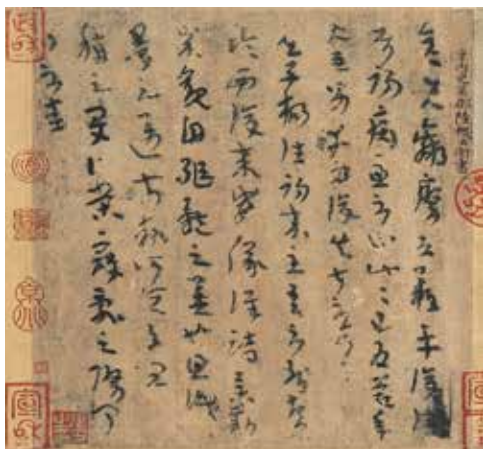 平原內史吳郡陸機士衡書
彥先羸瘵恐難平復往屬
初病慮不止此此已為慶承
使唯男幸為復失前憂耳
吳子楊往初來主吾不能盡
臨西復來威儀詳跱舉動
成觀自軀體之美也思識
量之邁前執所恒有宜
稱之夏伯榮寇亂之際聞
問不悉